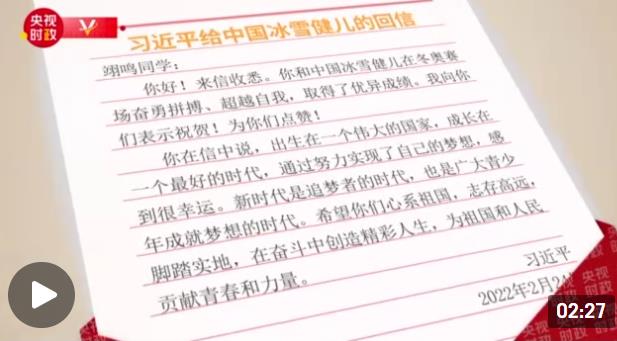 央视
时政
习近平给中国冰雪健儿的回信
翊鸣同学：
你好！来信收悉。你和中国冰雪健儿在冬奥赛
场奋勇拼搏、超越自我，取得了优异成绩。我向你
们表示祝贺！为你们点赞！
你在信中说，出生在一个伟大的国家，成长在
一个最好的时代，通过努力实现了自己的梦想，感
到很幸运。新时代是追梦者的时代，也是广大青少
年成就梦想的时代。希望你们心系祖国，志存高远，
脚踏实地，在奋斗中创造精彩人生，为祖国和人民
贡献青春和力量。
习近平
2022年2月2
央视
时政
02:27